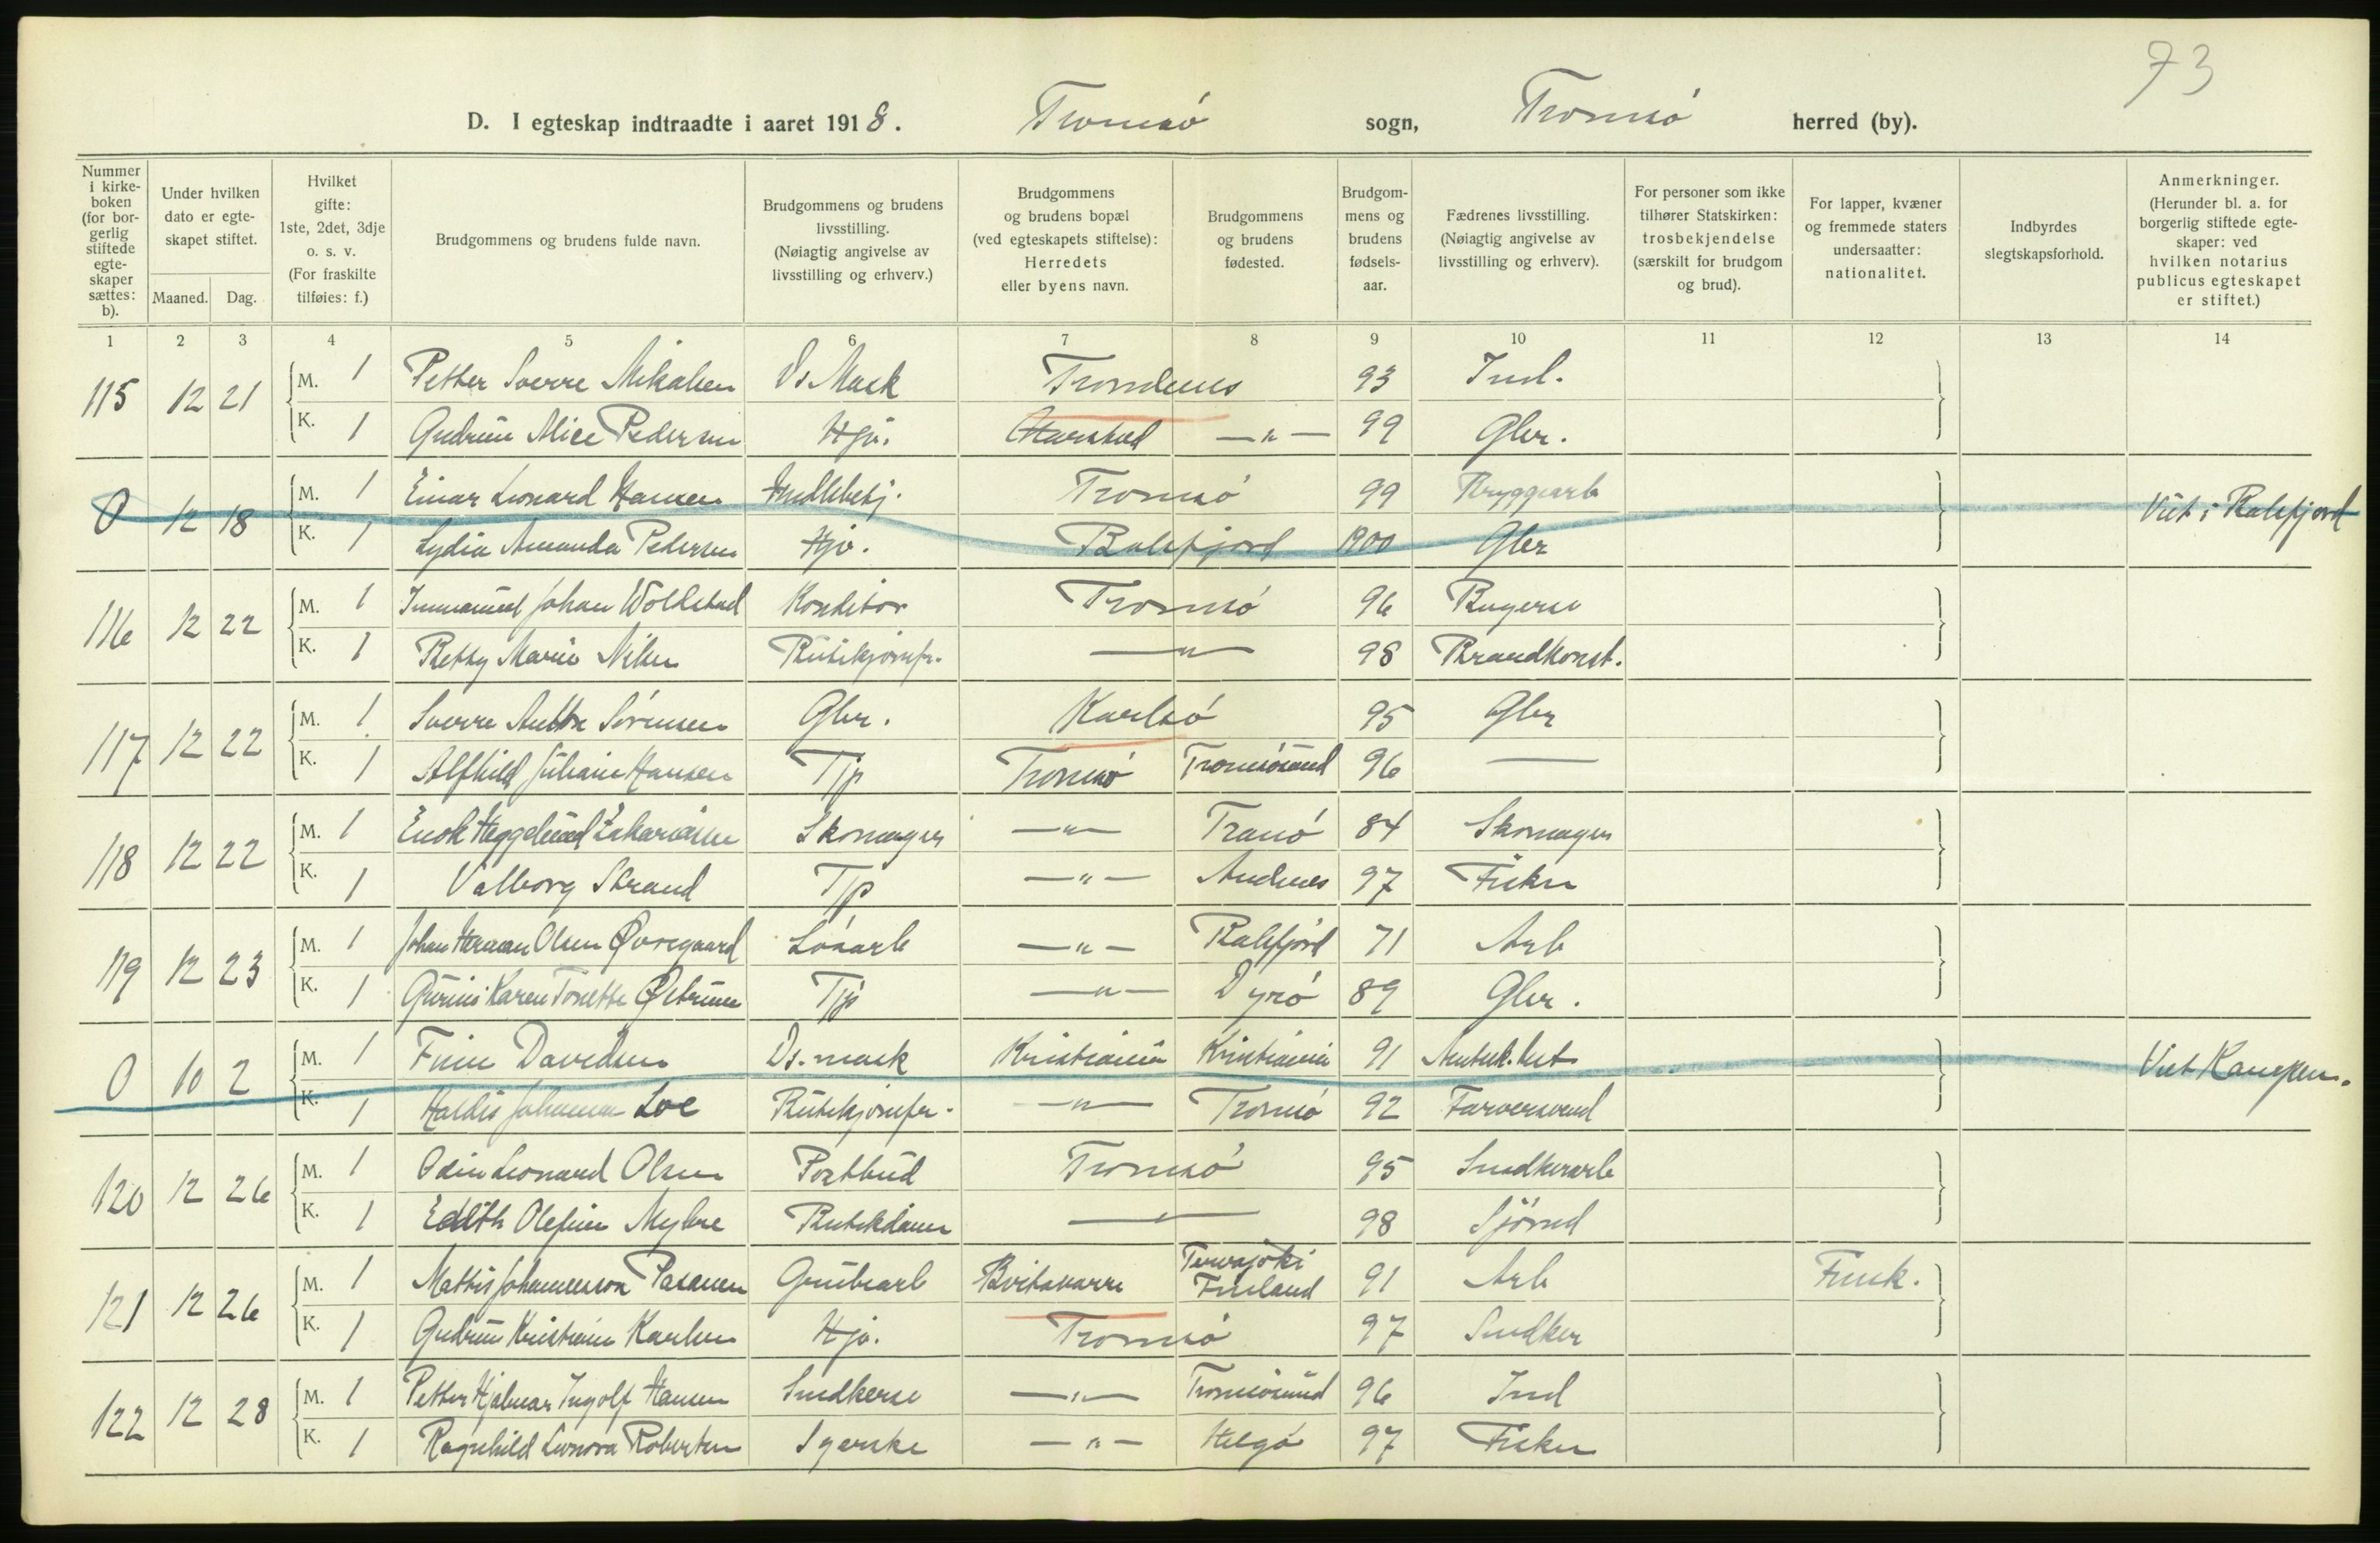 73
D. I egteskap indtraadte i aaret 1918. Tromsø sogn, Tromsø herred (by).
Nummer i kirkeboken (for borgerlig stiftede egteskaper sættes: b).
Under hvilken dato er egteskapet stiftet.
Maaned. Dag.
Hvilket gifte: 1ste, 2det, 3dje o. s. v. (For fraskilte tilføies: f.)
Brudgommens og brudens fulde navn.
Brudgommens og brudens livsstilling. (Nøiagtig angivelse av livsstilling og erhverv.)
Brudgommens og brudens bopæl (ved egteskapets stiftelse): Herredets eller byens navn.
Brudgommens og brudens fødested.
Brudgommens og brudens fødselsaar.
Fædrenes livsstilling. (Nøiagtig angivelse av livsstilling og erhverv).
For personer som ikke tilhører Statskirken: trosbekjendelse (særskilt for brudgom og brud).
For lapper, kvæner og fremmede staters undersaatter: nationalitet.
Indbyrdes slegtskapsforhold.
Anmerkninger. (Herunder bl. a. for borgerlig stiftede egteskaper: ved hvilken notarius publicus egteskapet er stiftet.)
1 2 3 4 5 6 7 8 9 10 11 12 13 14
115 12 21 M. 1 Petter Sverre Mikalsen Ds. Mask Trondenes 93 Ind.
K. 1 Gudrun Alice Pedersen Hjv. Harstad —"— 99 Gbr.
0 12 18 M. 1 Einar Leonard Hansen Hndlsbetj. Tromsø 99 Bryggearb Viet i Balsfjord
K. 1 Lydia Amanda Pedersen Hjv. Balsfjord 1900 Gbr
116 12 22 M. 1 Immanuel Johan Woldstad Konditor Tromsø 96 Bagersv
K. 1 Betsy Marie Nilsen Butikjomfr. —"— 98 Brandkonst.
117 12 22 M. 1 Sverre Anton Sørensen Gbr. Karlsø 95 Gbr
K. 1 Alfhild Juliane Hansen Tjp Tromsø Tromsøsund 96 —
118 12 22 M. 1 Enok Heggelund Zakariassen Skomager —"— Tranø 84 Skomager
K. 1 Valborg Strand Tjp —"— Andenes 97 Fisker
119 12 23 M. 1 Johan Herman Olsen Øvregaard Løsarb —"— Balsfjord 71 Arb
K. 1 Karen Tonette Tjp —"— Dyrø 89 Gbr.
0 10 2 M. 1 Finn Davidsen Ds. mask Kristiania Kristiania 91 Viet Kampen.
K. 1 Haldis Johanna Loe Butikjomfr. —"— Tromsø 92 Farversvend
120 12 26 M. 1 Odin Leonard Olsen Postbud Tromsø 95 Snedkerarb
K. 1 Edith Olefine Myhre Butikdame —"— 98 Sjømd
121 12 26 M. 1 Mattis Johannesson Pasanen Grubearb Finland 91 Arb Finsk.
K. 1 Gudrun Kristiane Karlsen Hjv. Tromsø 97 Snedker
122 12 28 M. 1 Petter Hjalmar Ingolf Hansen Snedkersv —"— Tromsøsund 96 Ind
K. 1 Ragnhild Leonora Robertsen Syerske —"— Helgø 97 Fisker